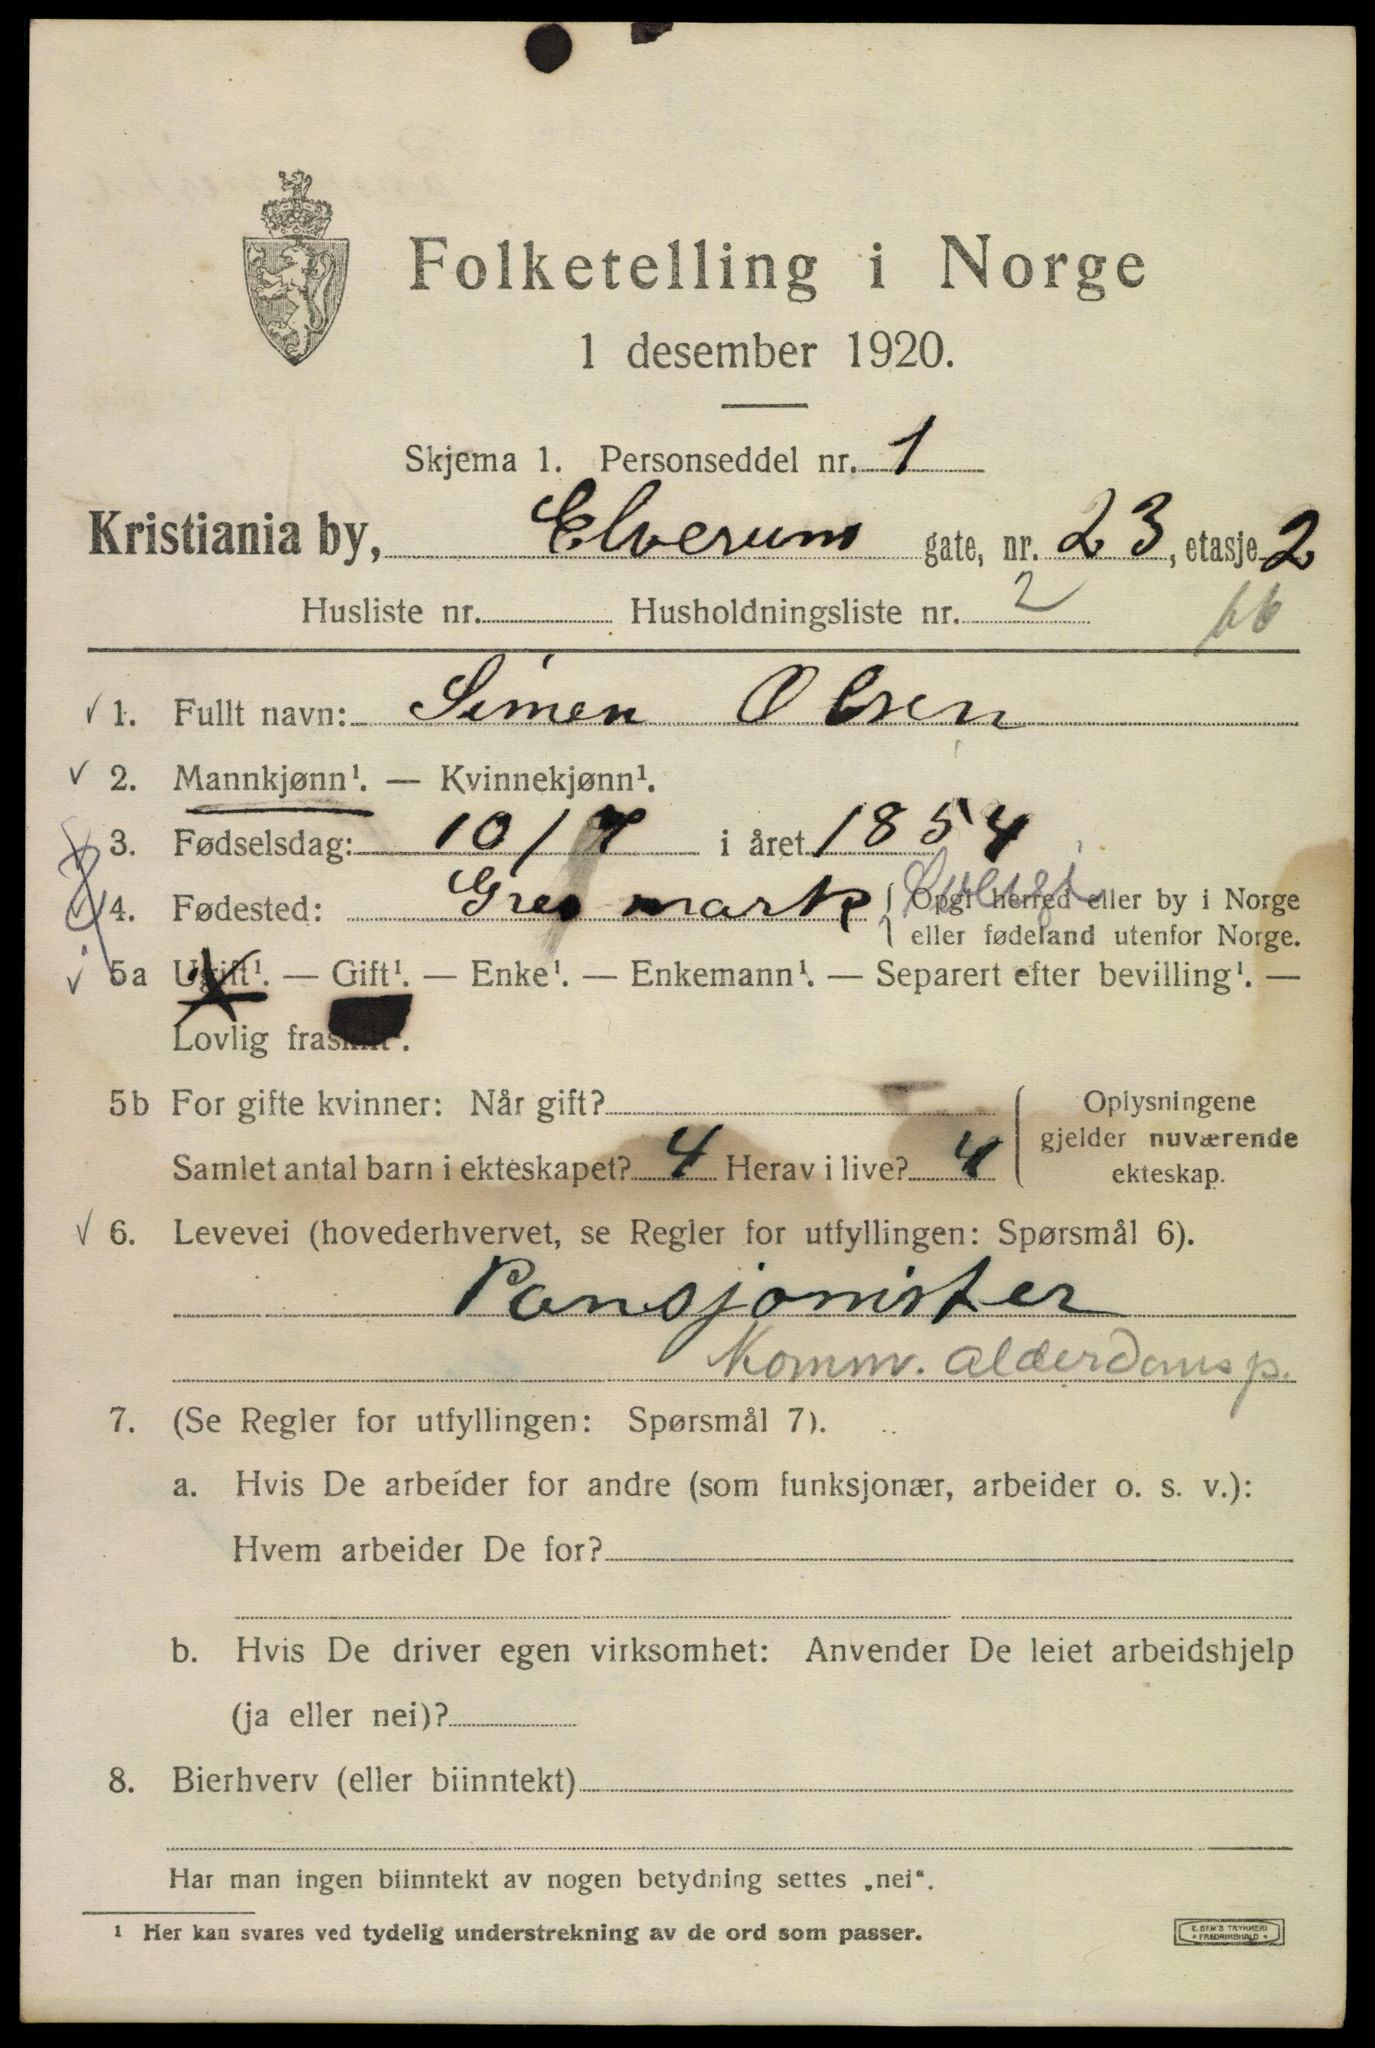 Folketelling i Norge
1 desember 1920.
Skjema 1. Personseddel nr. 1
Kristiania by, Elverum gate, nr. 23, etasje 2
Husliste nr. Husholdningsliste nr. 2
66
1. Fullt navn: Simen Olsen
2. Mannkjønn¹. — Kvinnekjønn¹.
3. Fødselsdag: 10/7 i året 1854
4. Fødested: Gresmark Opgi herred eller by i Norge
eller fødeland utenfor Norge.
5a Ugift¹. — Gift¹. — Enke¹. — Enkemann¹. — Separert efter bevilling¹. —
Lovlig fraskilt¹.
5b For gifte kvinner: Når gift?
Samlet antal barn i ekteskapet? 4 Herav i live? 4
Oplysningene
gjelder nuværende
ekteskap.
6. Levevei (hovederhvervet, se Regler for utfyllingen: Spørsmål 6).
Pansjonister
Komm. alderdomsp.
7. (Se Regler for utfyllingen: Spørsmål 7).
a. Hvis De arbeider for andre (som funksjonær, arbeider o. s. v.):
Hvem arbeider De for?
b. Hvis De driver egen virksomhet: Anvender De leiet arbeidshjelp
(ja eller nei)?
8. Bierhverv (eller biinntekt)
Har man ingen biinntekt av nogen betydning settes „nei“.
¹ Her kan svares ved tydelig understrekning av de ord som passer.
E. SEM'S TRYKKERI
FREDRIKSHALD